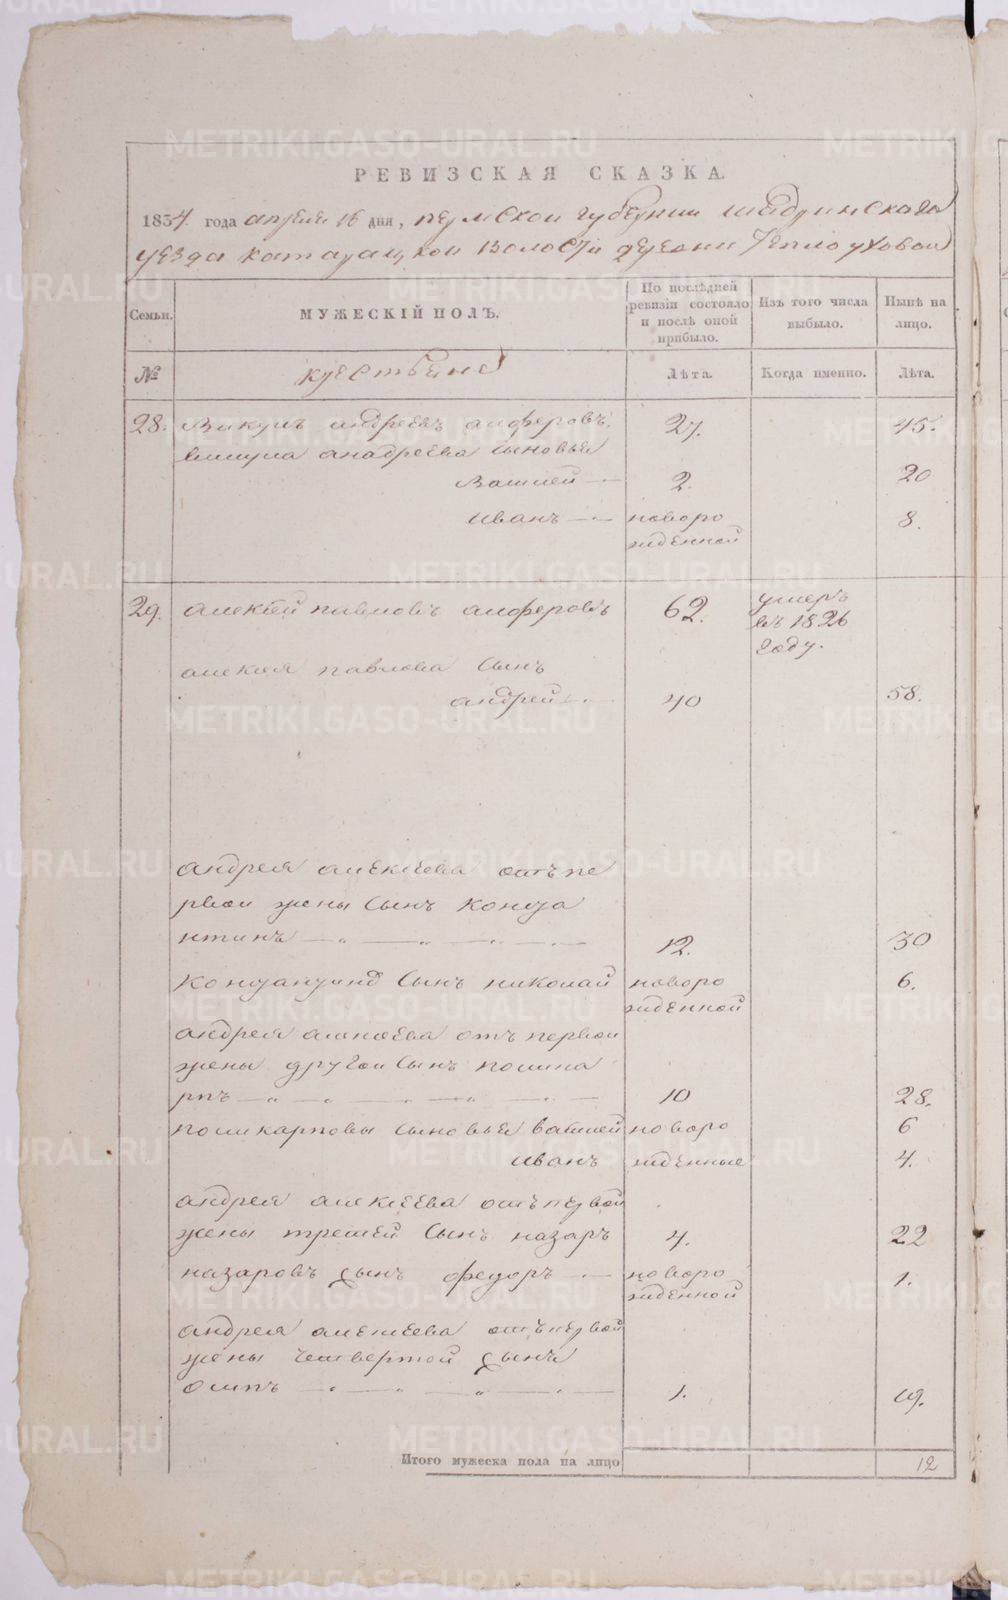 РЕВИЗСКАЯ СКАЗКА.
1834 года апреля 16 дня, пермской губернии шадринскаго
уезда катайской волости деревни теплоуховой
Семьи.
МУЖЕСКІЙ ПОЛЪ.
По послѣдней ревизіи состояло и послѣ оной прибыло.
Изъ того числа выбыло.
Нынѣ на лицо.
№
крестьяне
Лѣта.
Когда именно.
Лѣта.
28. Викулъ андреевъ алферовъ. 27. 45.
викула анадреева сыновья
Василей 2. 20
Иванъ новоро 8.
жденной
29. алексей павловъ алферовъ 62. умеръ
въ 1826
году.
алексея павлова сынъ
андрей 40 58.
андрея алексеева отъ пе
рвои жены сынъ конста
нтинъ 12. 30
константина сынъ николай новоро 6.
жденной
андрея алексеева отъ первои
жены другои сынъ полика
рпъ 10 28.
поликарповы сыновья василей новоро 6
иванъ жденные 4.
андрея алексеева отъ первой
жены третей сынъ назаръ 4. 22
назаровъ сынъ федоръ новоро 1.
жденной
андрея алексеева отъ первой
жены четвертой сынъ
осипъ 1. 19.
Итого мужеска пола на лицо 12
METRIKI.GASO-URAL.RU